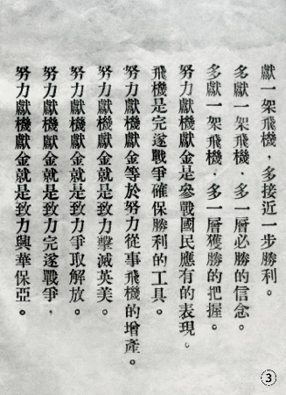 獻一架飛機，多接近一步勝利。
多獻一架飛機．多一層必勝的信念。
多獻一架飛機．多一層獲勝的把握。
努力獻機獻金是參戰國民應有的表現。
飛機是完遂戰爭確保勝利的工具。
努力獻機獻金等於努力從事飛機的增產。
努力獻機獻金就是致力擊滅英美。
努力獻機獻金就是致力爭取解放。
努力獻機獻金就是致力完遂戰爭．
努力獻機獻金就是致力興華保亞。
③